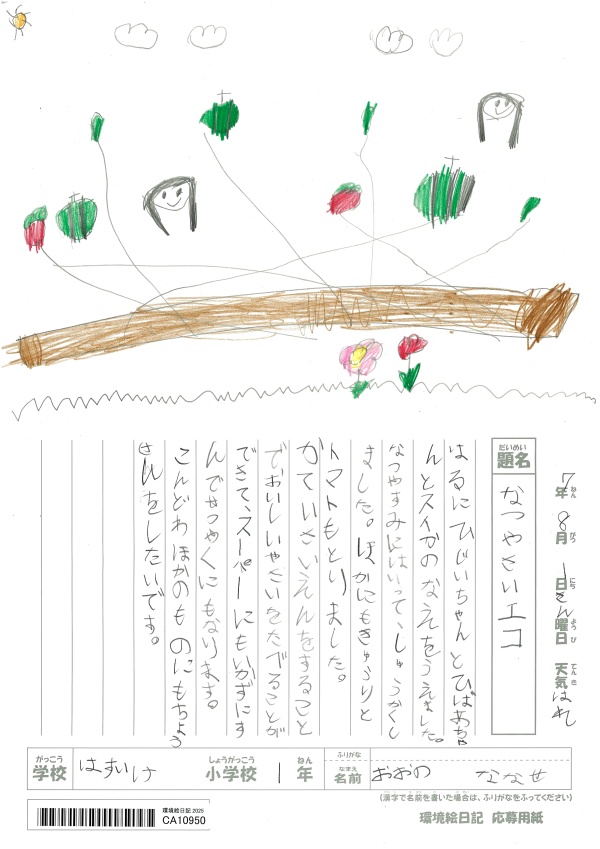 7年 8月 1日 きん曜日 天気 はれ
ねん がつ にち ようび てんき
だいめい
題名 なつやさいエコ
はるにひじいちゃんとひばあちゃ
んとスイカのなえをうえました。
なつやすみにはいって、しゅうかくし
ました。ほかにもきゅうりと
トマトもとりました。
かていさいえんをすること
でおいしいやさいをたべることが
できて、スーパーにもいかずにす
んでせつやくにもなります。
こんどわほかのものにもちょう
せんをしたいです。
がっこう しょうがっこう ねん ふりがな
学校 はすいけ 小学校 1年
なまえ
名前 おおの ななせ
(漢字で名前を書いた場合は、ふりがなをふってください)
環境絵日記 2025
CA10950
環境絵日記 応募用紙